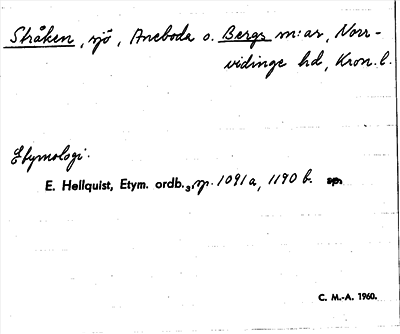 Stråken, sjö, Aneboda o. Bergs sn:ar, Norr-
vidinge hd, Kron. l.
Etymologi.
E. Hellquist, Etym. ordb.3, sp. 1091 a, 1190 b.
C. M.-A. 1960.